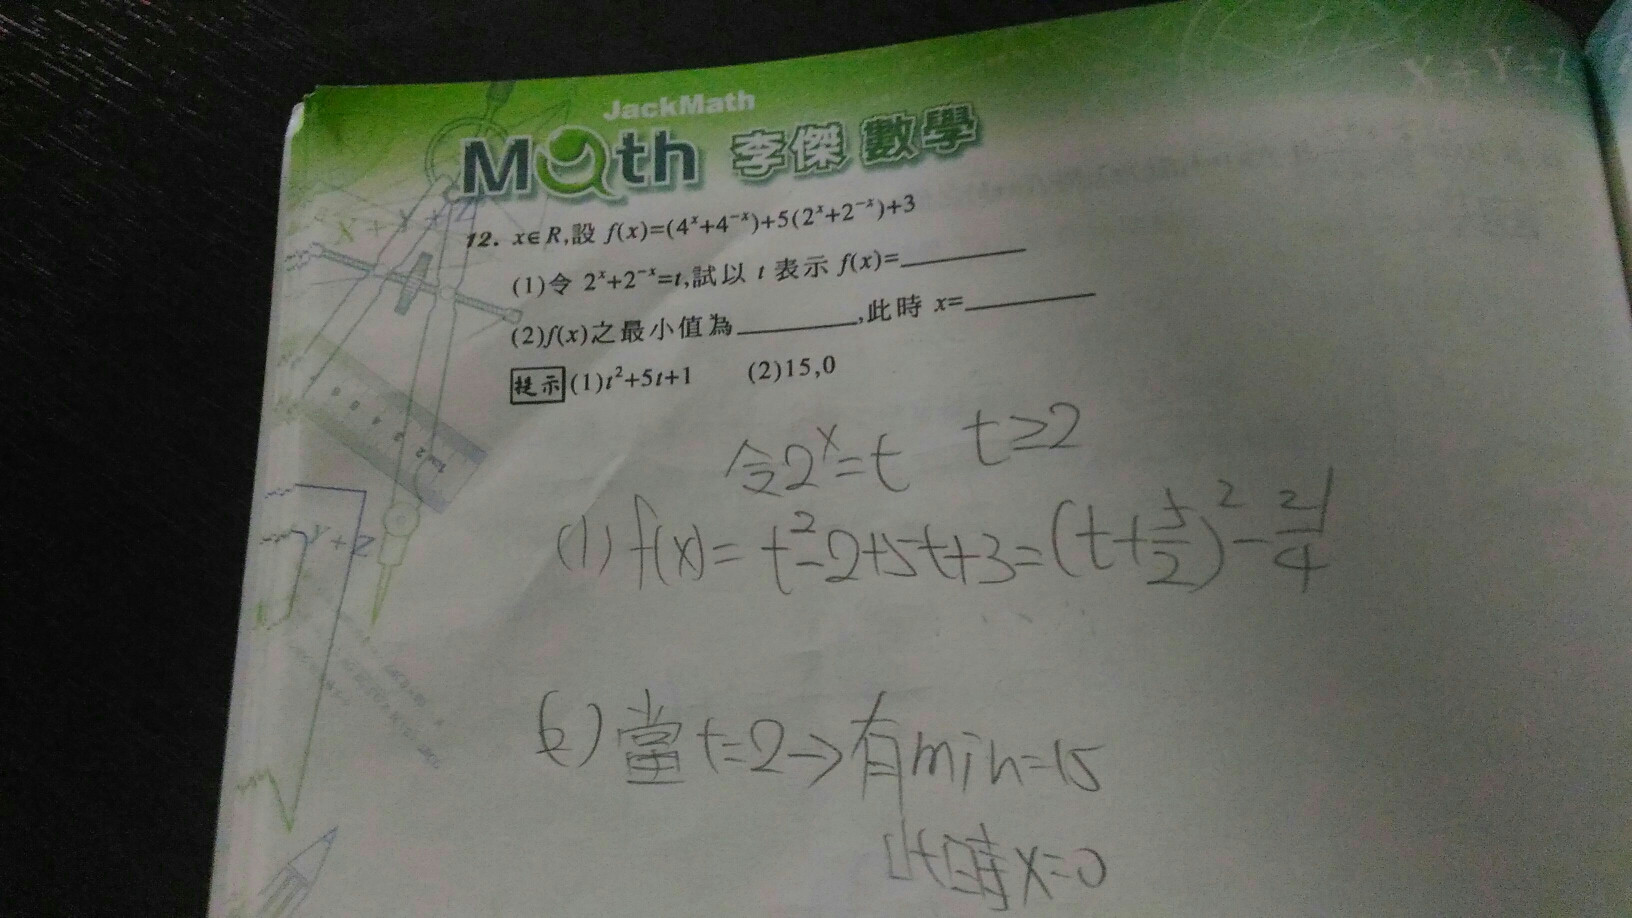 JackMath
Math 李傑 數學
12. x∈R,設 f(x)=(4ˣ+4⁻ˣ)+5(2ˣ+2⁻ˣ)+3
(1)令 2ˣ+2⁻ˣ=t,試以 t 表示 f(x)=________
(2)f(x)之最小值為________,此時 x=________
提示(1)t²+5t+1 (2)15,0
令2ˣ=t t≥2
(1) f(x)= t²-2+5t+3=(t+5/2)²-21/4
(2)當t=2→有min=15
此時x=0